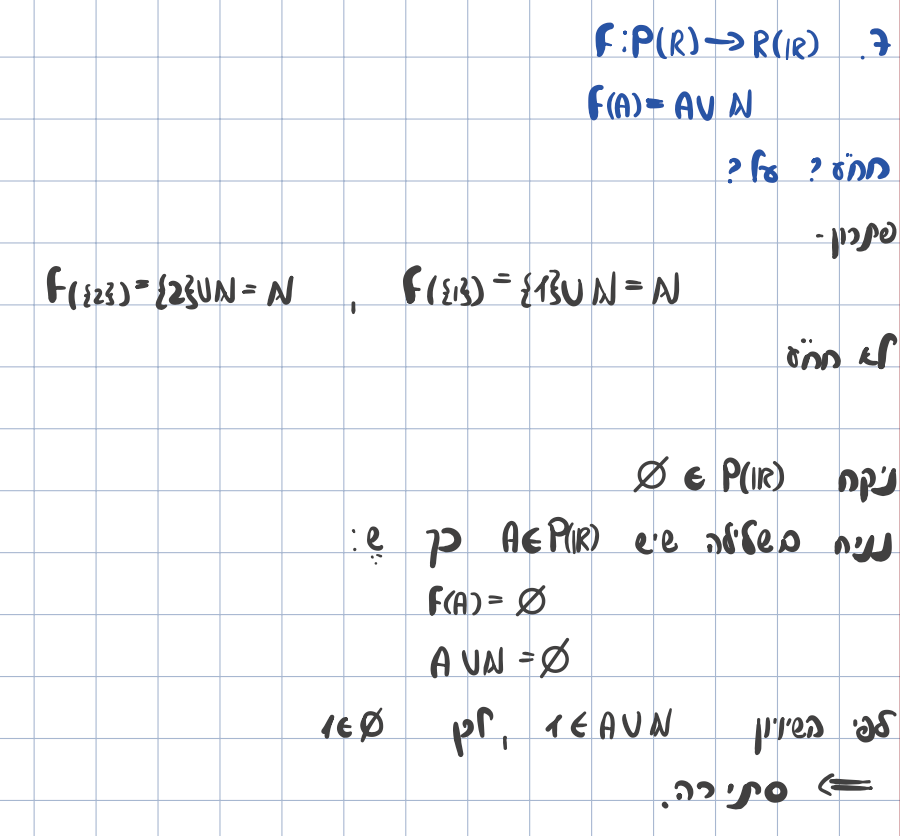 ד. F:P(ℝ)→R(ℝ)
F(A)=A∪ℕ
חח"ע? על?
פתרון-
F({1})={1}∪ℕ=ℕ , F({2})={2}∪ℕ=ℕ
לא חח"ע
ניקח ∅∈P(ℝ)
נניח בשלילה שיש A∈P(ℝ) כך ש:
F(A)=∅
A∪ℕ=∅
לפי השיוויון 1∈A∪ℕ, לכן 1∈∅
⇐ סתירה.